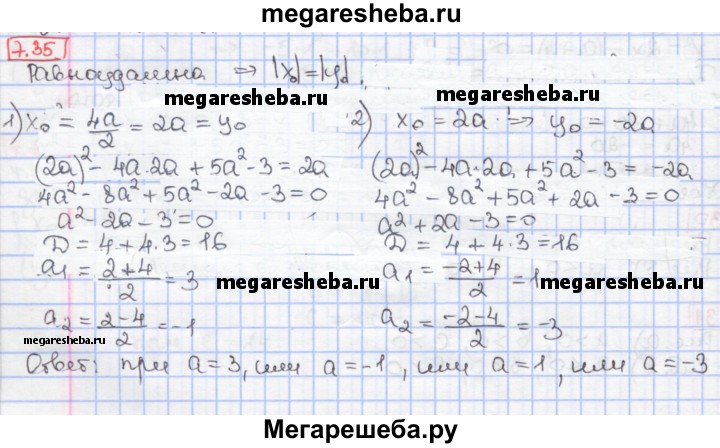 megaresheba.ru
7.35
Равноудалена ⇒ |x₀|=|y₀|.
megaresheba.ru
megaresheba.ru
1) x₀ = 4a/2 = 2a = y₀
2) x₀ = 2a ⇒ y₀ = -2a
(2a)² - 4a·2a + 5a² - 3 = 2a
4a² - 8a² + 5a² - 2a - 3 = 0
a² - 2a - 3 = 0
D = 4 + 4·3 = 16
a₁ = (2+4)/2 = 3
a₂ = (2-4)/2 = -1
(2a)² - 4a·2a + 5a² - 3 = -2a
4a² - 8a² + 5a² + 2a - 3 = 0
a² + 2a - 3 = 0
D = 4 + 4·3 = 16
a₁ = (-2+4)/2 = 1
a₂ = (-2-4)/2 = -3
megaresheba.ru
megaresheba.ru
megaresheba.ru
Ответ: при a=3, или a=-1, или a=1, или a=-3
Мегарешеба.ру